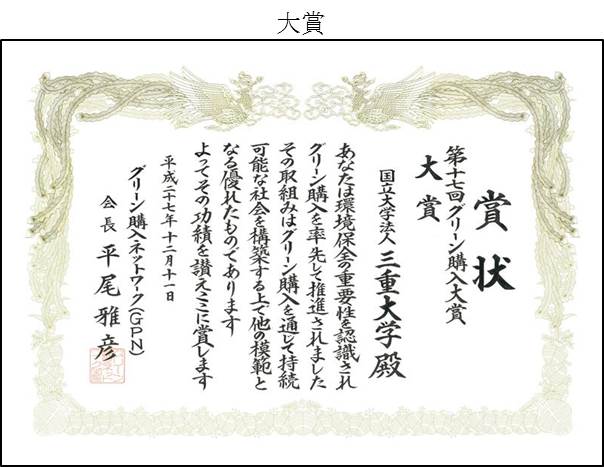 大賞
賞状
第十七回グリーン購入大賞
大賞
国立大学法人 三重大学 殿
あなたは環境保全の重要性を認識され
グリーン購入を率先して推進されました
その取組みはグリーン購入を通じて持続
可能な社会を構築する上で他の模範と
なる優れたものであります
よってその功績を讃えここに賞します
平成二十七年十二月十一日
グリーン購入ネットワーク(GPN)
会長 平尾雅彦